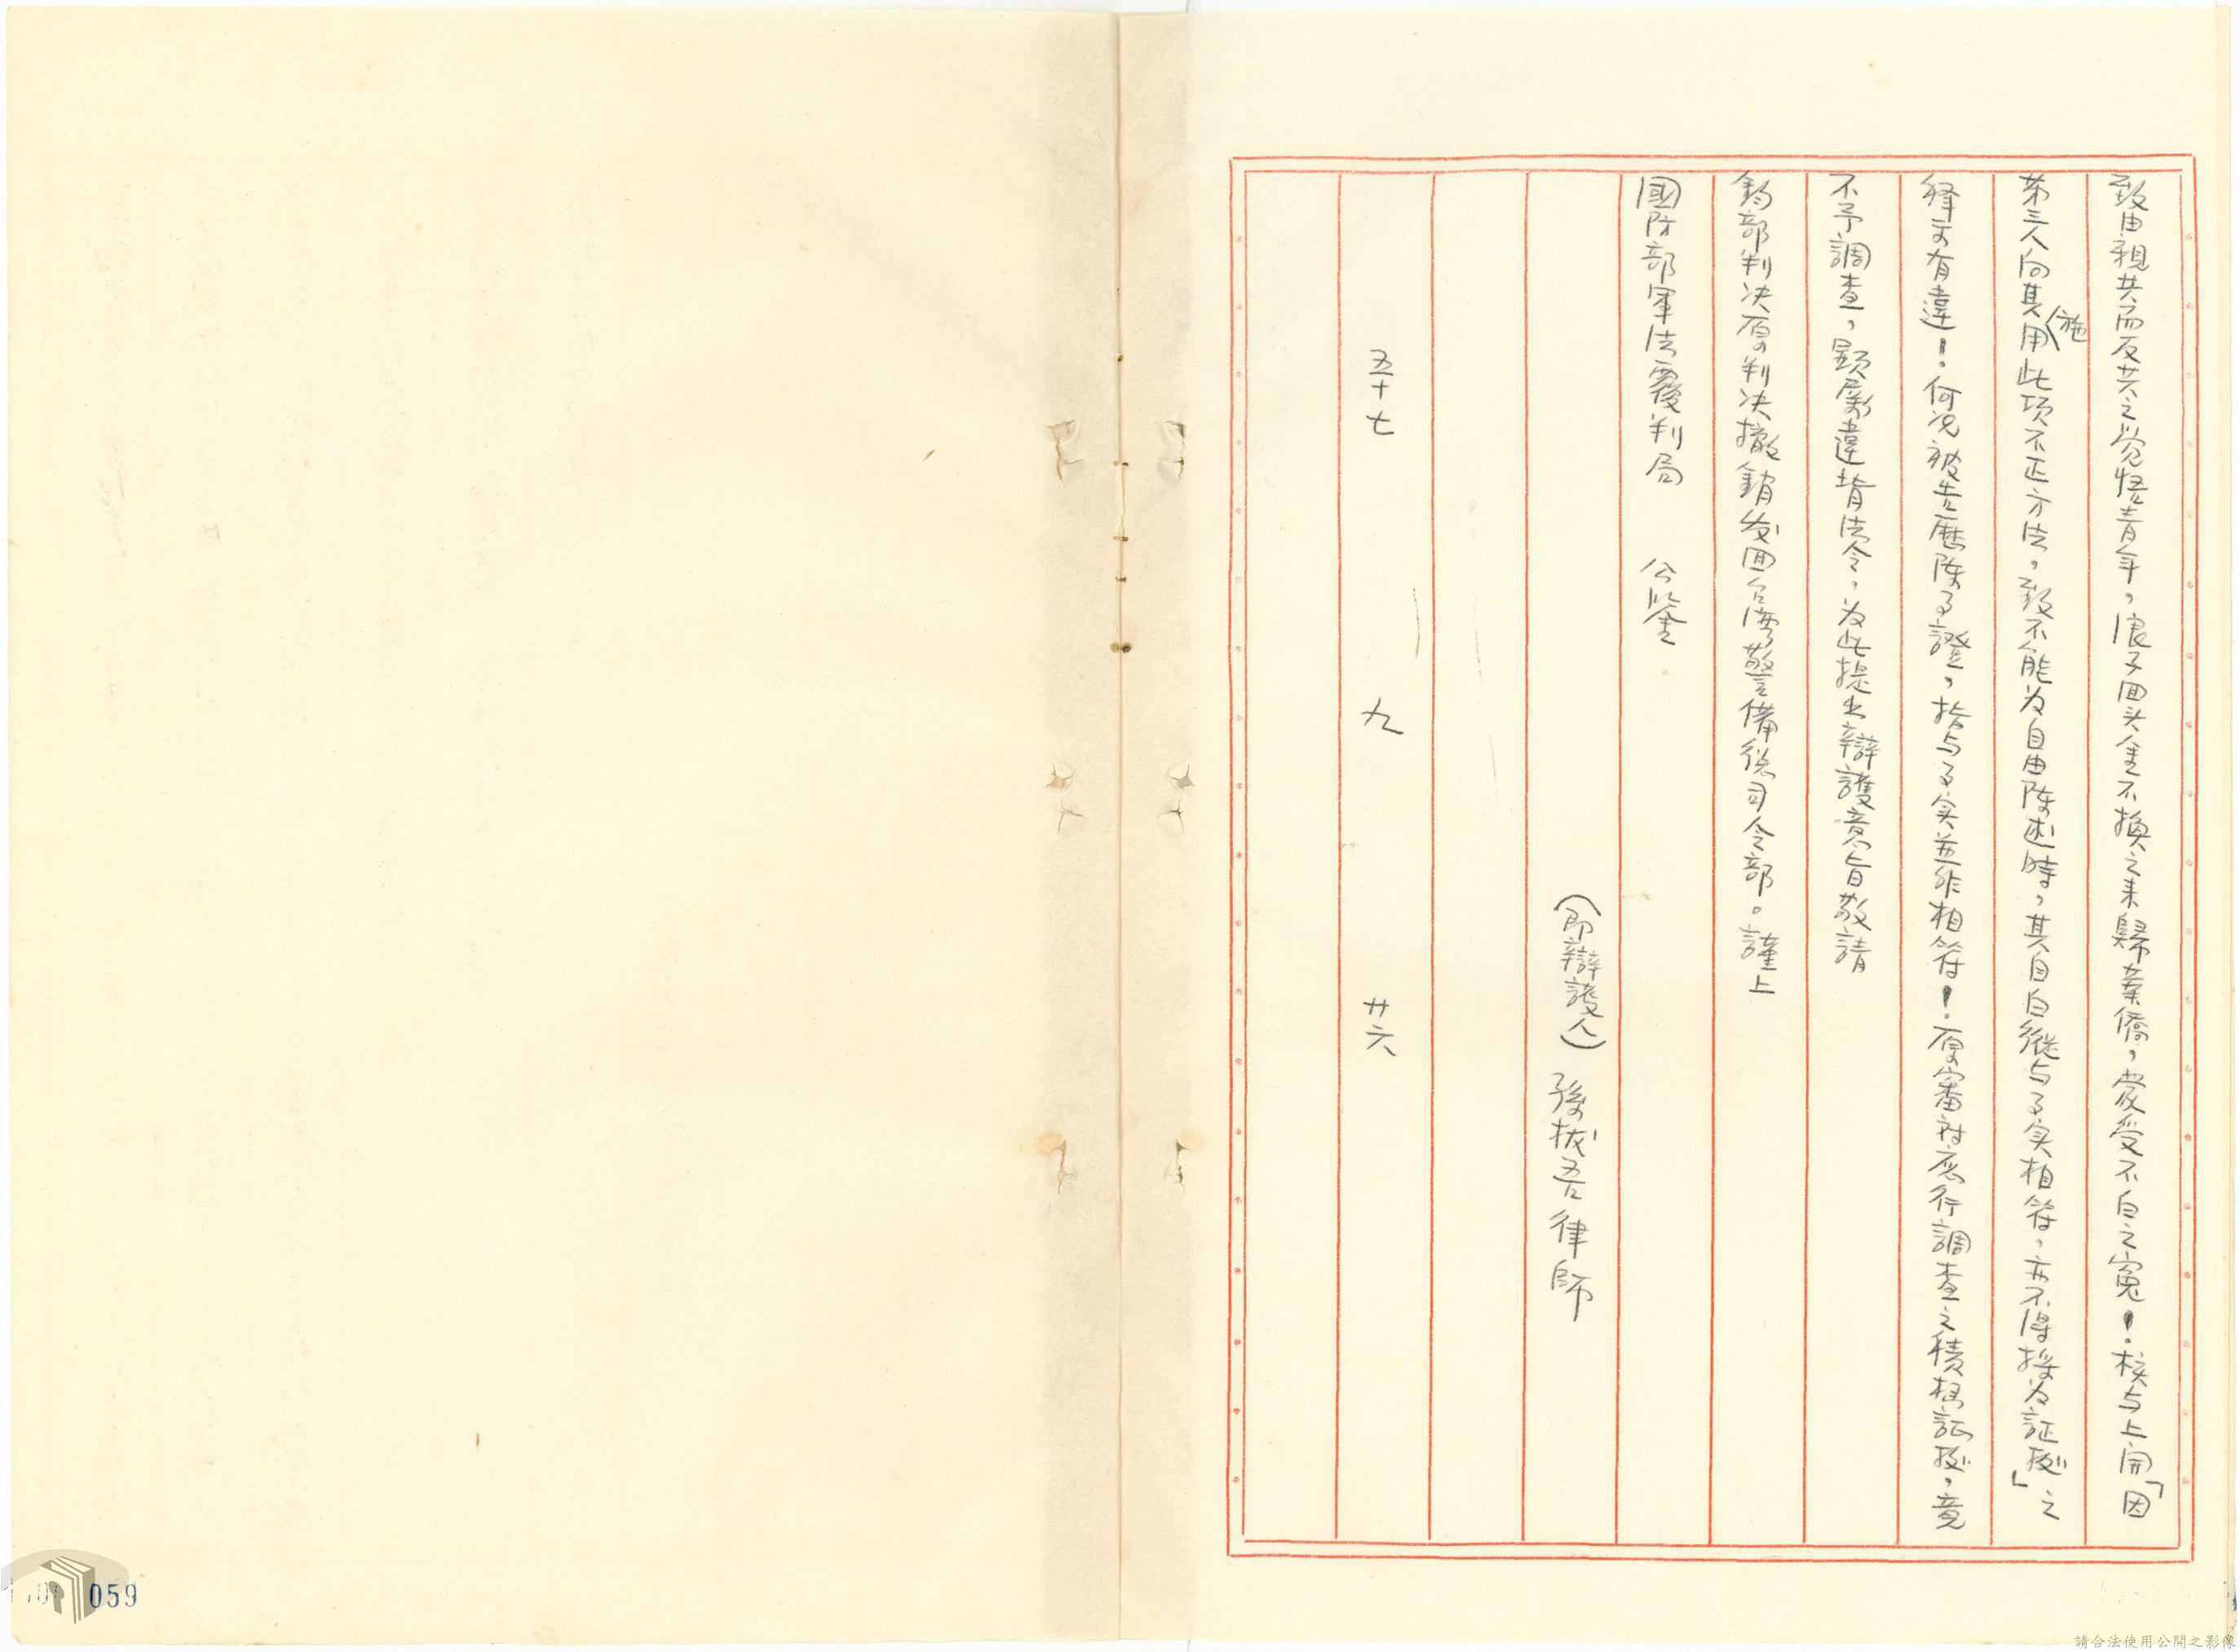 致由親共而反共之覚悟青年，浪子回头金不换之来歸華僑，蒙受不白之寃！核与上開「因
第三人向其施用此項不正方法，致不能为自由陈述時，其自白縱与事实相符，亦不得採为証据」之
釋示有違！何况被告歷陈事證，指与事实並非相符！原審对应行調查之積極証据，竟
不予調查，顯屬違背法令，为此提出辯護意旨敬請
鈞部判决原判决撤銷发回台湾警備總司令部。謹上
國防部軍法覆判局　公鑒
（即辯護人）孫拔吾律師
五十七　九　廿六
059
請合法使用公開之影像